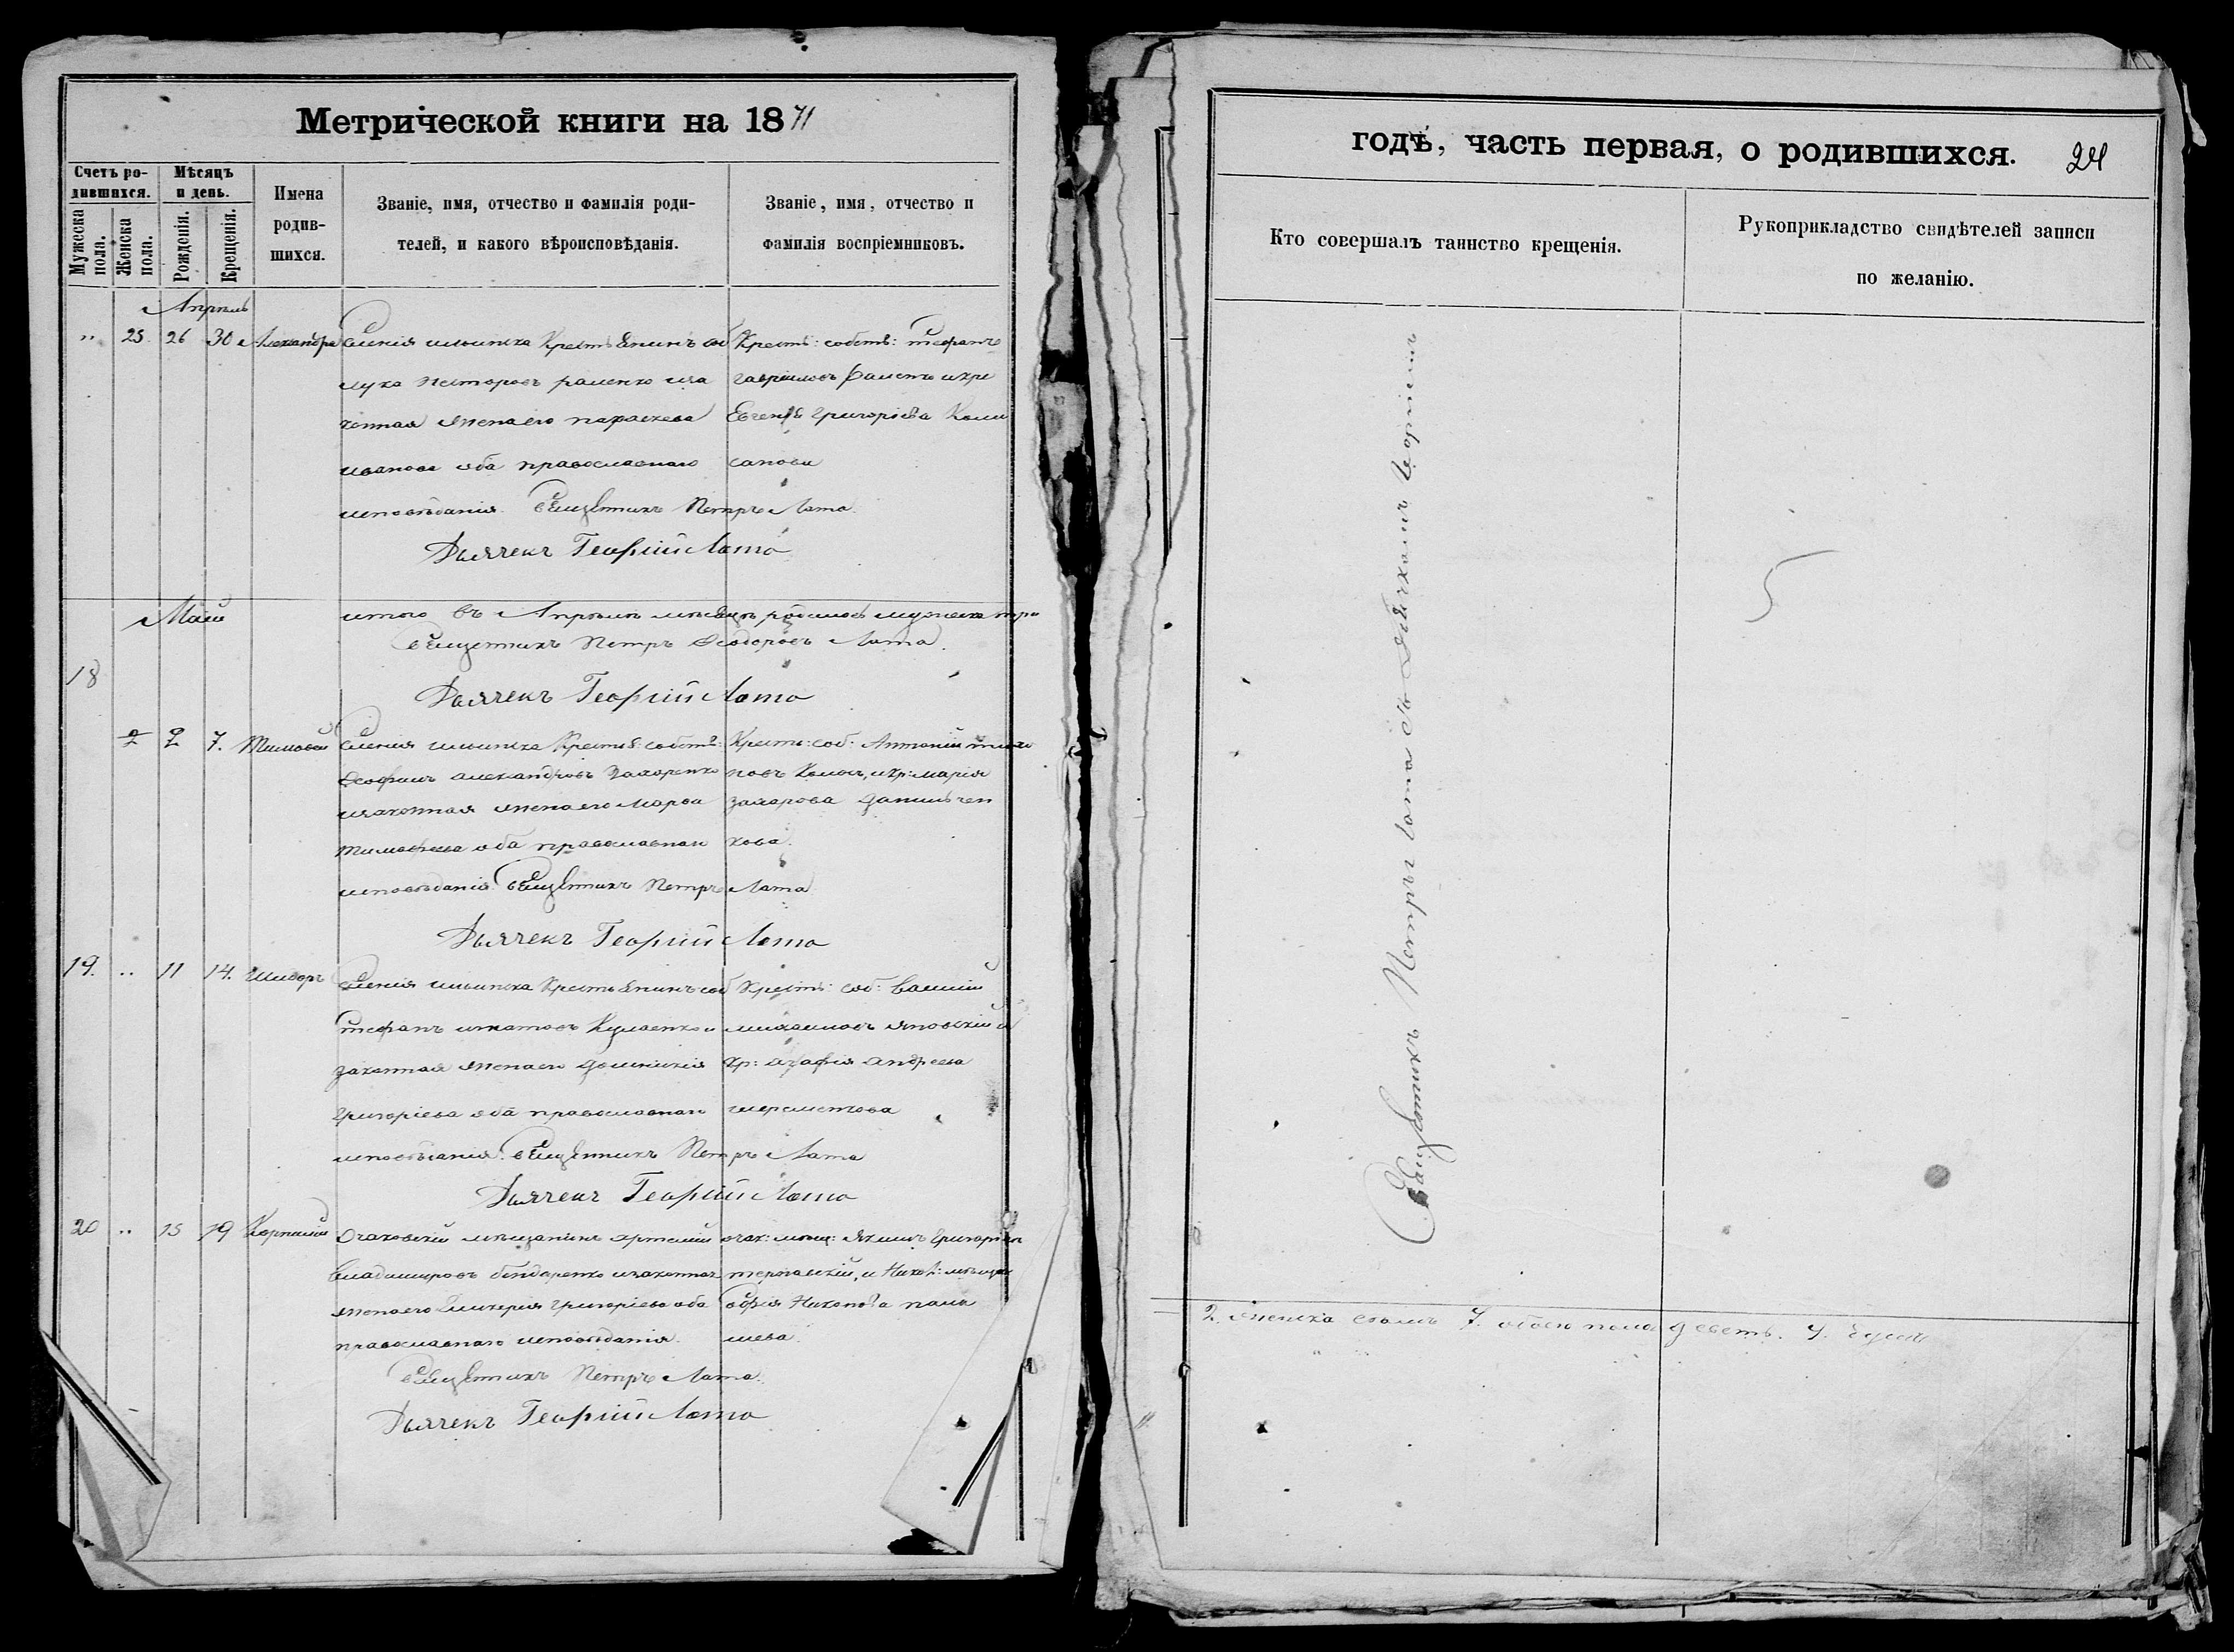 Метрической книги на 1871
Счетъ родившихся.
Мѣсяцъ и день.
Мужеска пола.
Женска пола.
Рожденія.
Крещенія.
Имена родившихся.
Званіе, имя, отчество и фамилія родителей, и какого вѣроисповѣданія.
Званіе, имя, отчество и фамилія воспріемниковъ.
Апрѣль
" 25. 26 30 Александра
Селенія Ильинска Крестьянинъ соб
Лука Несторовъ раменко иза
конная жена его параскева
иванова оба православнаго
исповѣданія. Священникъ Петръ Лата.
Дьячекъ Георгій Лато
Крест: собств: Стефанъ
гавриловъ раменко и кре
Евгенія григоріева
санова
Май
итого въ Апрѣлѣ мѣсяцѣ родилось мужеска три
Священникъ Петръ Ѳеодоровъ Лата.
Дьячекъ Георгій Лато
18
2 7. Тимофей
Селенія ильинска Крестья: собств:
Ѳеофилъ александровъ Захаренко
изаконная жена его Марѳа
тимофеева оба православнаго
исповѣданія. Священникъ Петръ Лата
Дьячекъ Георгій Лато
Крестья: соб: Антоній
новъ и кр: марія
захарова данильчен
кова.
19. " 11 14. Исидоръ
Селенія ильинска Крестьянинъ соб
Стефанъ игнатовъ и
законная жена его домникія
григоріева оба православнаго
исповѣданія. Священникъ Петръ Лата
Дьячекъ Георгій Лато
Крестья: соб: Василій
михаиловъ яновскій и
кр: агафія андреева
шереметова
20 " 15 19 Корнилій
Очаковскій мѣщанинъ артемій
владимировъ бондаренко изаконная
жена его Гликерія григоріева оба
православнаго исповѣданія.
Священникъ Петръ Лата.
Дьячекъ Георгій Лато
очак: мѣщ: Якимъ григорьевъ
терновскій, и Никол: мѣщан
Софія Никонова
годѣ, часть первая, о родившихся.
24
Кто совершалъ таинство крещенія.
Рукоприкладство свидѣтелей записи по желанію.
Священникъ Петръ Лата съ Дьячкомъ Георгіемъ
женска 7. обоего пола